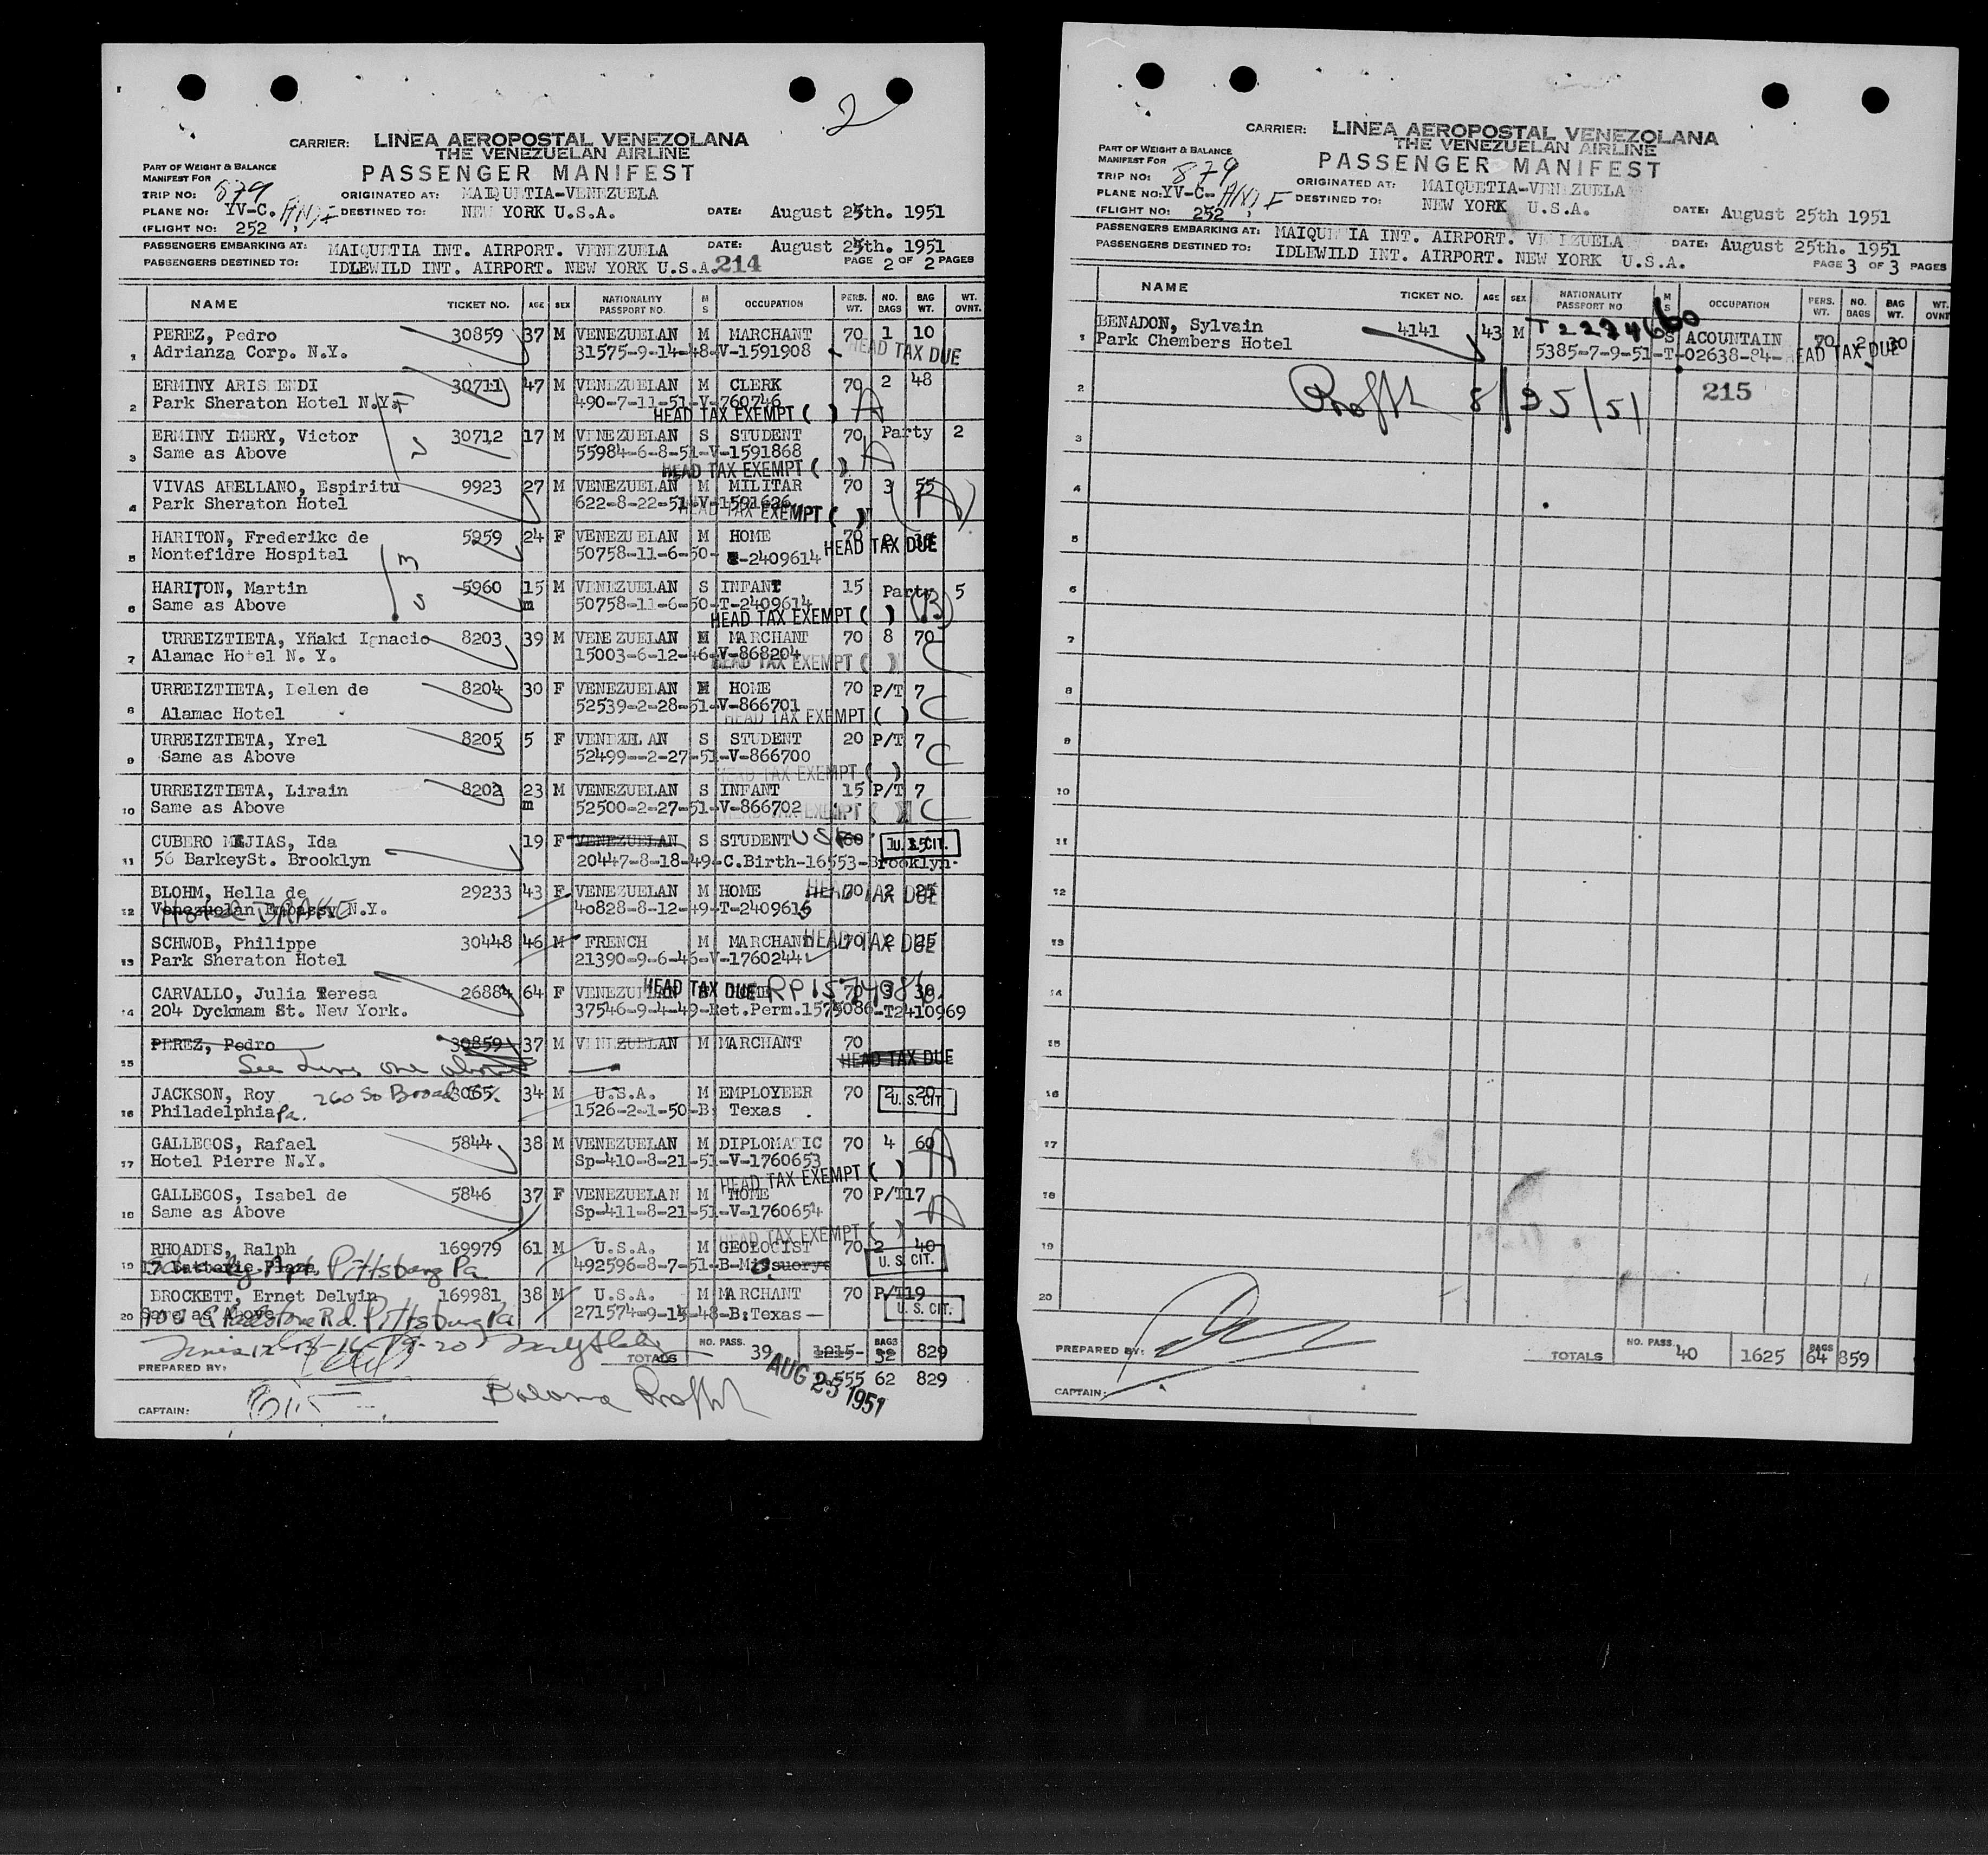 2
CARRIER: LINEA AEROPOSTAL VENEZOLANA
THE VENEZUELAN AIRLINE
PASSENGER MANIFEST
PART OF WEIGHT & BALANCE
MANIFEST FOR
TRIP NO: 879
ORIGINATED AT: MAIQUETIA-VENEZUELA
PLANE NO: YV-C.
DESTINED TO: NEW YORK U.S.A.
DATE: August 25th. 1951
(FLIGHT NO: 252
PASSENGERS EMBARKING AT: MAIQUETIA INT. AIRPORT. VENEZUELA DATE: August 25th. 1951
PASSENGERS DESTINED TO: IDLEWILD INT. AIRPORT. NEW YORK U.S.A. 214 PAGE 2 OF 2 PAGES
NAME TICKET NO. AGE SEX NATIONALITY PASSPORT NO. M S OCCUPATION PERS. WT. NO. BAGS BAG WT. WT. OVNT.
1 PEREZ, Pedro 30859 37 M VENEZUELAN M MARCHANT 70 1 10
Adrianza Corp. N.Y. 31575-9-14-48-V-1591908 HEAD TAX DUE
2 ERMINY ARIS ENDI 30711 47 M VENEZUELAN M CLERK 70 2 48
Park Sheraton Hotel N.Y. 490-7-11-51-V-760746 A
HEAD TAX EXEMPT ( )
3 ERMINY IMERY, Victor 30712 17 M VENEZUELAN S STUDENT 70 Party 2
Same as Above 55984-6-8-51-V-1591868 A
HEAD TAX EXEMPT ( )
4 VIVAS ARELLANO, Espiritu 9923 27 M VENEZUELAN M MILITAR 70 3 55
Park Sheraton Hotel 622-8-22-51-V-1591626 (A)
HEAD TAX EXEMPT ( )
5 HARITON, Frederikc de 5959 24 F VENEZUELAN M HOME 70
Montefidre Hospital 50758-11-6-50- T-2409614 HEAD TAX DUE
6 HARITON, Martin 5960 15 m M VENEZUELAN S INFANT 15 Party 5
Same as Above 50758-11-6-50-T-2409614 (B)
HEAD TAX EXEMPT ( )
7 URREIZTIETA, Yñaki Ignacio 8203 39 M VENEZUELAN M MARCHANT 70 8 70
Alamac Hotel N. Y. 15003-6-12-46-V-868204 C
HEAD TAX EXEMPT ( )
8 URREIZTIETA, Delen de 8204 30 F VENEZUELAN M HOME 70 P/T 7
Alamac Hotel 52539-2-28-51-V-866701 C
HEAD TAX EXEMPT ( )
9 URREIZTIETA, Yrel 8205 5 F VENEZUELAN S STUDENT 20 P/T 7
Same as Above 52499--2-27-51-V-866700 C
HEAD TAX EXEMPT ( )
10 URREIZTIETA, Lirain 8202 23 m M VENEZUELAN S INFANT 15 P/T 7
Same as Above 52500-2-27-51-V-866702 C
HEAD TAX EXEMPT ( )
11 CUBERO MEJIAS, Ida 19 F VENEZUELAN S STUDENT 60 1 15 U.S. CIT.
56 BarkeySt. Brooklyn 20447-8-18-49-C.Birth-16553-Brooklyn-
12 BLOHM, Hella de 29233 43 F VENEZUELAN M HOME 70 2 25 HEAD TAX DUE
Venezuelan Embassy N.Y. 40828-8-12-49-T-2409615
13 SCHWOB, Philippe 30448 46 M FRENCH M MARCHANT 70 2 HEAD TAX DUE
Park Sheraton Hotel 21390-9-6-46-V-1760244
14 CARVALLO, Julia Teresa 26884 64 F VENEZUELAN HOME 70 3 30 HEAD TAX DUE
204 Dyckmam St. New York. 37546-9-4-49-Ret.Perm.1575086-T2410969
15 PEREZ, Pedro 30859 37 M VENEZUELAN M MARCHANT 70
See Line one above HEAD TAX DUE
16 JACKSON, Roy 260 So Broad St. 34 M U.S.A. M EMPLOYEER 70 2 20 U.S. CIT.
Philadelphia Pa. 1526-2-1-50-B: Texas .
17 GALLEGOS, Rafael 5844 38 M VENEZUELAN M DIPLOMATIC 70 4 60
Hotel Pierre N.Y. Sp-410-8-21-51-V-1760653 A
HEAD TAX EXEMPT ( )
18 GALLEGOS, Isabel de 5846 37 F VENEZUELAN M HOME 70 P/T 17
Same as Above Sp-411-8-21-51-V-1760654 A
HEAD TAX EXEMPT ( )
19 RHOADES, Ralph 169979 61 M U.S.A. M GEOLOGIST 70 2 40
Pittsburg Pa 492596-8-7-51-B-Missuorys U.S. CIT.
20 BROCKETT, Ernet Delvin 169981 38 M U.S.A. M MARCHANT 70 P/T 19
Same as Above Rd. Pittsburg Pa 271574-9-15-48-B:Texas U.S. CIT.
NO. PASS. 39 1215- BAGS 32 829
TOTALS
PREPARED BY:
555 62 829
AUG 25 1951
CAPTAIN:
CARRIER: LINEA AEROPOSTAL VENEZOLANA
THE VENEZUELAN AIRLINE
PASSENGER MANIFEST
PART OF WEIGHT & BALANCE
MANIFEST FOR
TRIP NO: 879
ORIGINATED AT: MAIQUETIA-VENEZUELA
PLANE NO: YV-C-
DESTINED TO: NEW YORK U.S.A.
DATE: August 25th 1951
(FLIGHT NO: 252
PASSENGERS EMBARKING AT: MAIQUE IA INT. AIRPORT. VENEZUELA DATE: August 25th. 1951
PASSENGERS DESTINED TO: IDLEWILD INT. AIRPORT. NEW YORK U.S.A. PAGE 3 OF 3 PAGES
NAME TICKET NO. AGE SEX NATIONALITY PASSPORT NO M S OCCUPATION PERS. WT. NO. BAGS BAG WT. WT. OVNT
1 BENADON, Sylvain 4141 43 M S ACOUNTAIN 70 2 30
Park Chembers Hotel 5385-7-9-51-T-02638-84- HEAD TAX DUE
2 8/25/51 215
3
4
5
6
7
8
9
10
11
12
13
14
15
16
17
18
19
20
PREPARED BY:
TOTALS NO. PASS. 40 1625 BAGS 64 859
CAPTAIN: